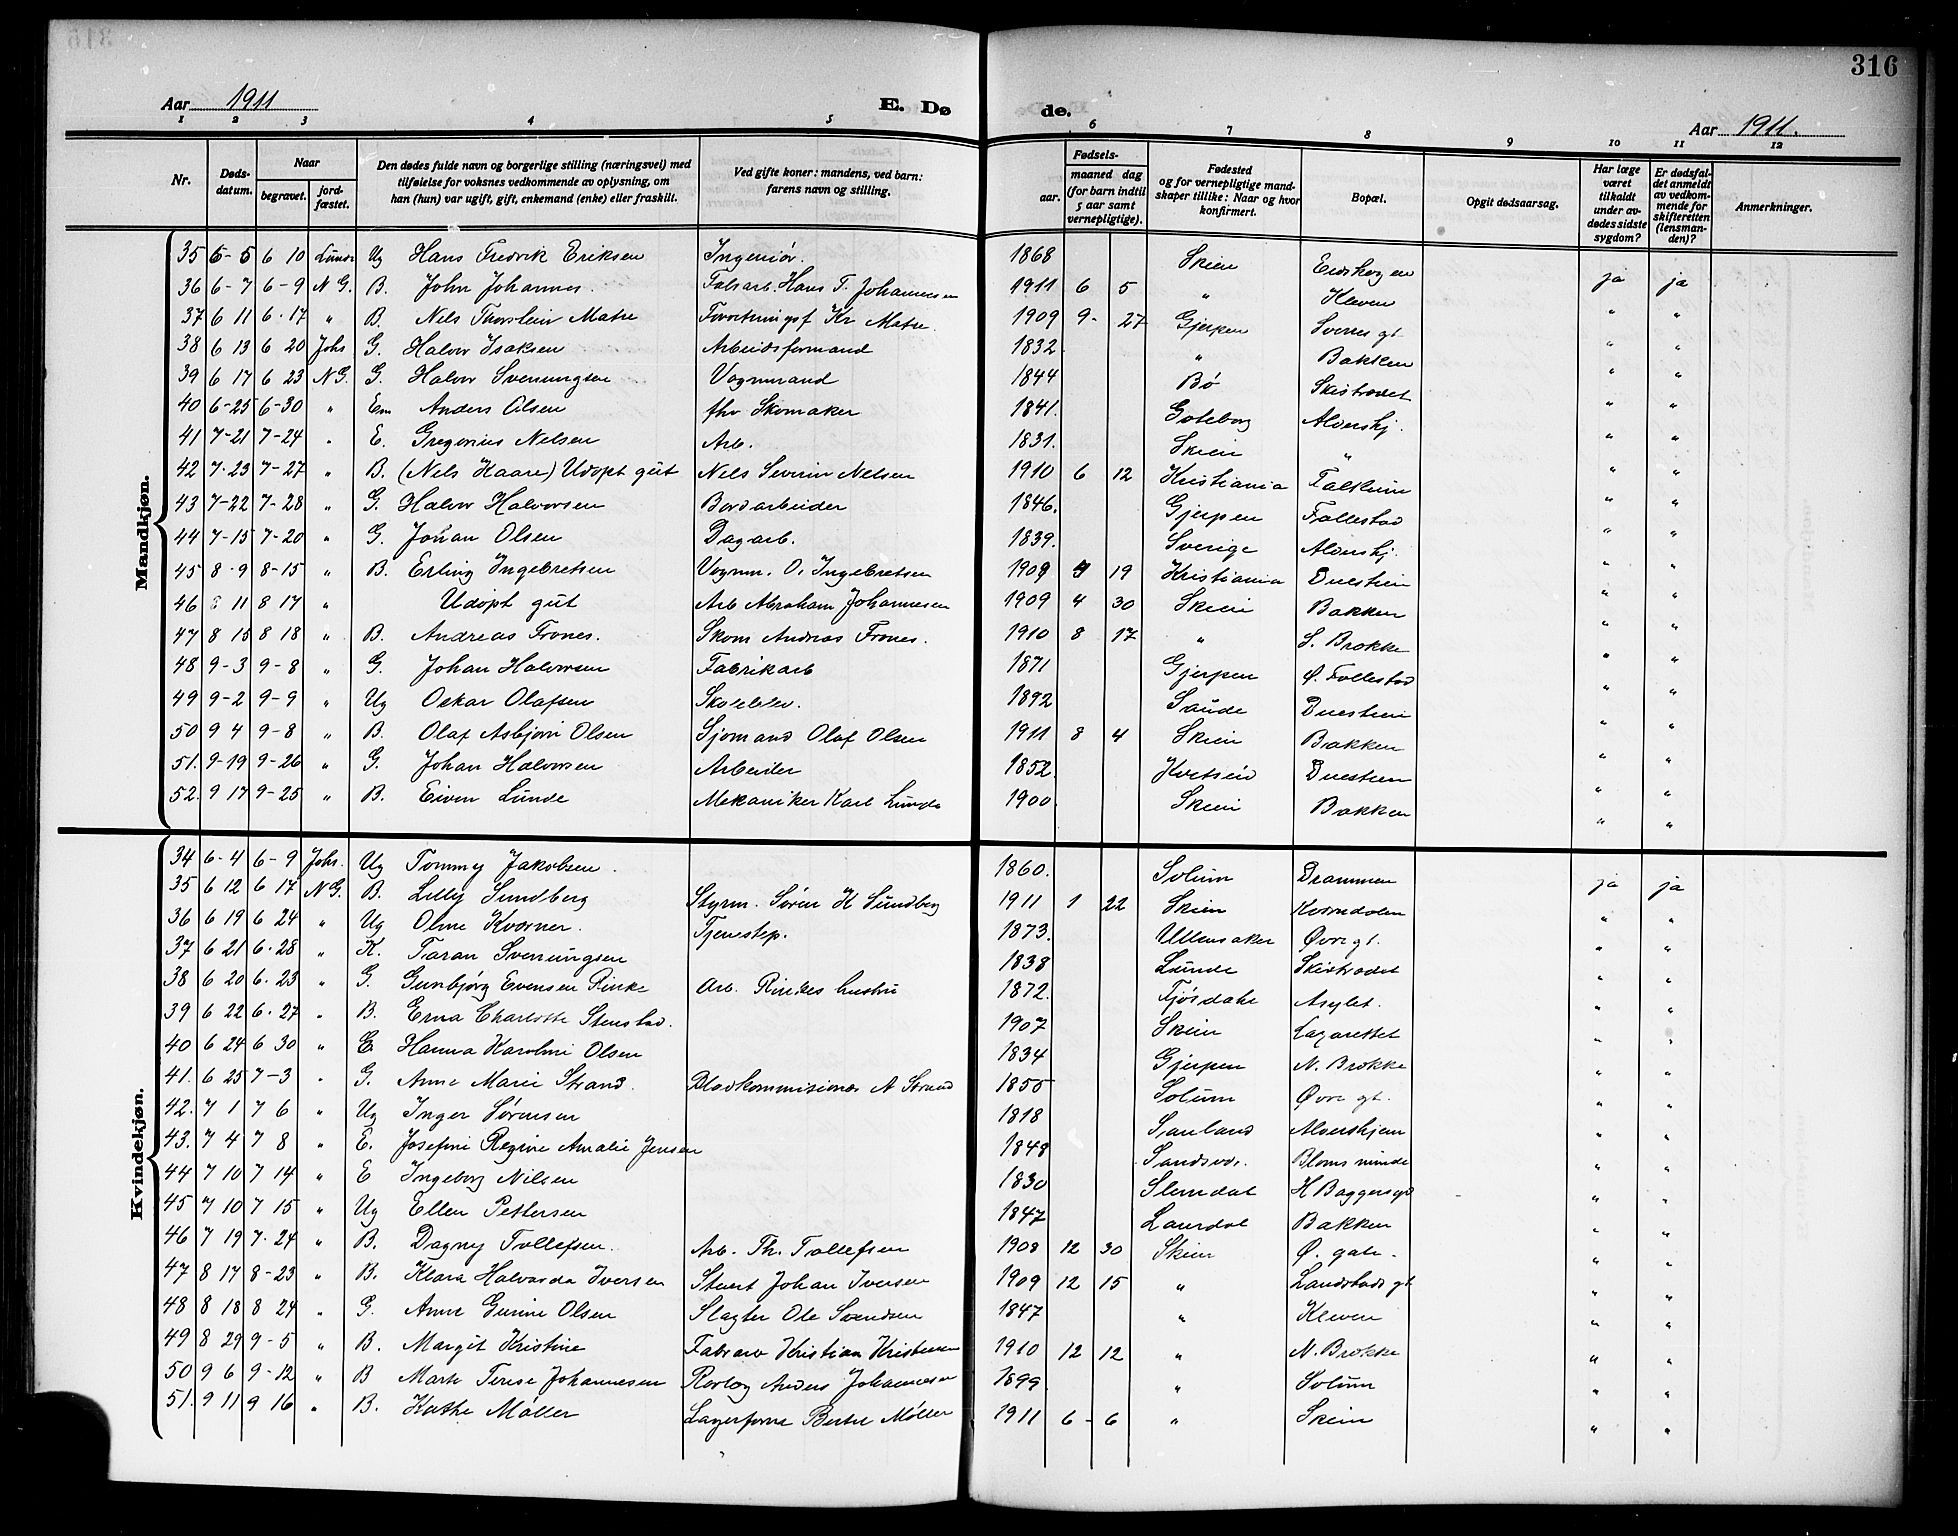 316
Aar 1911 E. Døde. Aar 1911.
1 2 3 4 5 6 7 8 9 10 11 12
Nr. Døds-datum. Naar begravet. jord-fæstet. Den dødes fulde navn og borgerlige stilling (næringsvei) med tilføielse for voksnes vedkommende av oplysning, om han (hun) var ugift, gift, enkemand (enke) eller fraskilt. Ved gifte koner: mandens, ved barn: farens navn og stilling. Fødsels- aar. maaned dag (for barn indtil 5 aar samt vernepligtige). Fødested og for vernepligtige mandskaper tillike: Naar og hvor konfirmert. Bopæl. Opgit dødsaarsag. Har læge været tilkaldt under avdødes sidste sygdom? Er dødsfaldet anmeldt av vedkommende for skifteretten (lensmanden)? Anmerkninger.
Mandkjøn.
35 6-5 6 10 Lunde Ug Hans Fredrik Eriksen Ingeniør. 1868 Skien ja ja
36 6-7 6-9 N G. B. John Johannes. Falsarb. Hans T. Johannesen 1911 6 5 " Kleven " "
37 6 11 6.17 " B. Nels Thorstein Matre Forretningsf Kr Matre. 1909 9- 27 Gjerpen Sverres gt. " "
38 6 13 6 20 Johs G. Halvor Isaksen Arbeidsformand 1832 " Bakken " "
39 6 17 6 23 N G. G. Halvor Svenungsen Vognmand 1844 Bø Skistredet " "
40 6-25 6-30 " Em Anders Olsen fhv Skomaker 1841. Goteborg Alvershj. " "
41 7-21 7-24 " E. Gregorius Nelsen Arb. 1831. Skien " " "
42 7.23 7-27 " B. (Nels Kaare) Udøpt gut Nels Severin Nelsen 1910 6 12 Kristiania Falkum " "
43 7-22 7-28 " G. Halvor Halvorsen Bordarbeider 1846. Gjerpen Follestad " "
44 7-15 7-20 " G. Johan Olsen Dagarb. 1839. Sverige Alvershj. " "
45 8-9 8-15 " B. Erling Ingebretsen Vognm. O. Ingebretsen 1909 19 Kristiania Duestien " "
46 8 11 8 17 " Udøpt gut Arb Abraham Johannesen 1909 4 30 Skien Bakken " "
47 8 15 8 18 " B. Andreas Frones. Skom Andreas Frones. 1910 8 17 " S. Brokke " "
48 9-3 9-8 " G. Johan Halvorsen Fabrikarb 1871 Gjerpen Ø. Follestad " "
49 9-2 9-9 " Ug Oskar Olafsen Skoleelev. 1892 Saude Duestien " "
50 9 4 9-8 " B. Olaf Asbjørn Olsen Sjømand Olaf Olsen 1911 8 4 Skien Bakken " "
51. 9-19 9-26 " G. Johan Halvorsen Arbeider 1852. Kvitseid Duestien " "
52. 9 17 9-25 " B. Eiven Lunde Mekaniker Karl Lunde 1900. Skien Bakken " "
Kvindekjøn.
34 6-4 6-9 Johs. Ug Tommy Jakobsen. 1860. Solum Drammen ja ja
35 6 12 6 17 N G. B. Lilly Sundberg Styrm. Søren H Sundberg 1911 1 22 Skien " "
36 6 19 6 24 " Ug Oline Kverner. Tjenestep. 1873. Ullensaker Øvre gt. " "
37 6 21 6.28 " K. Taran Svenungsen 1838 Lunde Skistredet " "
38 6 20 6.23 " G. Gunbjørg Evensen Rinke Arb. Rinkes hustru 1872. Asylet. " "
39 6 22 6.27 " B. Erna Charlotte Stenstad. 1907 Skien Lazarettet " "
40 6 24 6 30 " E Hanna Karoline Olsen 1834 Gjerpen N. Brokke " "
41. 6 25 7-3 " G. Anne Marie Strand. Bladkommisionær A Strand 1855 Solum Øvre gt. " "
42. 7 1 7 6 " Ug Inger Sørensen 1818 Sauland Alvershjem " "
43. 7 4 7 8 " E. Josefine Regine Amalie Jensen 1848 Sandsvær. Bloms minde " "
44 7 10 7 14 " E Ingeborg Nilsen 1830 Slemdal H Baggersgt " "
45 7 10 7 15 " Ug Ellen Pettersen 1847 Laurdal Bakken " "
46 7 19 7.24 " B. Dagny Tollefsen. Arb. Th. Tollefsen 1908 12 30 Skien Ø. gate. " "
47 8 17 8-23 " B. Klara Halvarda Iversen Stuert Johan Iversen 1909 12 15 " Landstads gt " "
48 8 18 8 24 " G. Anne Gurine Olsen Slagter Ole Svendsen 1847 " Kleven " "
49 8 29 9-5 " B. Margit Kristine Fabrarb Kristian Kristensen 1910 12 12 " N. Brokke " "
50 9 6 9-12 " B Marte Terese Johannesen Rørlæg Anders Johannesen 1899 " Solum " "
51. 9 11 9 16 " B. Kathe Møller Lagerforv Bertel Møller 1911 6-6 " Skien " "